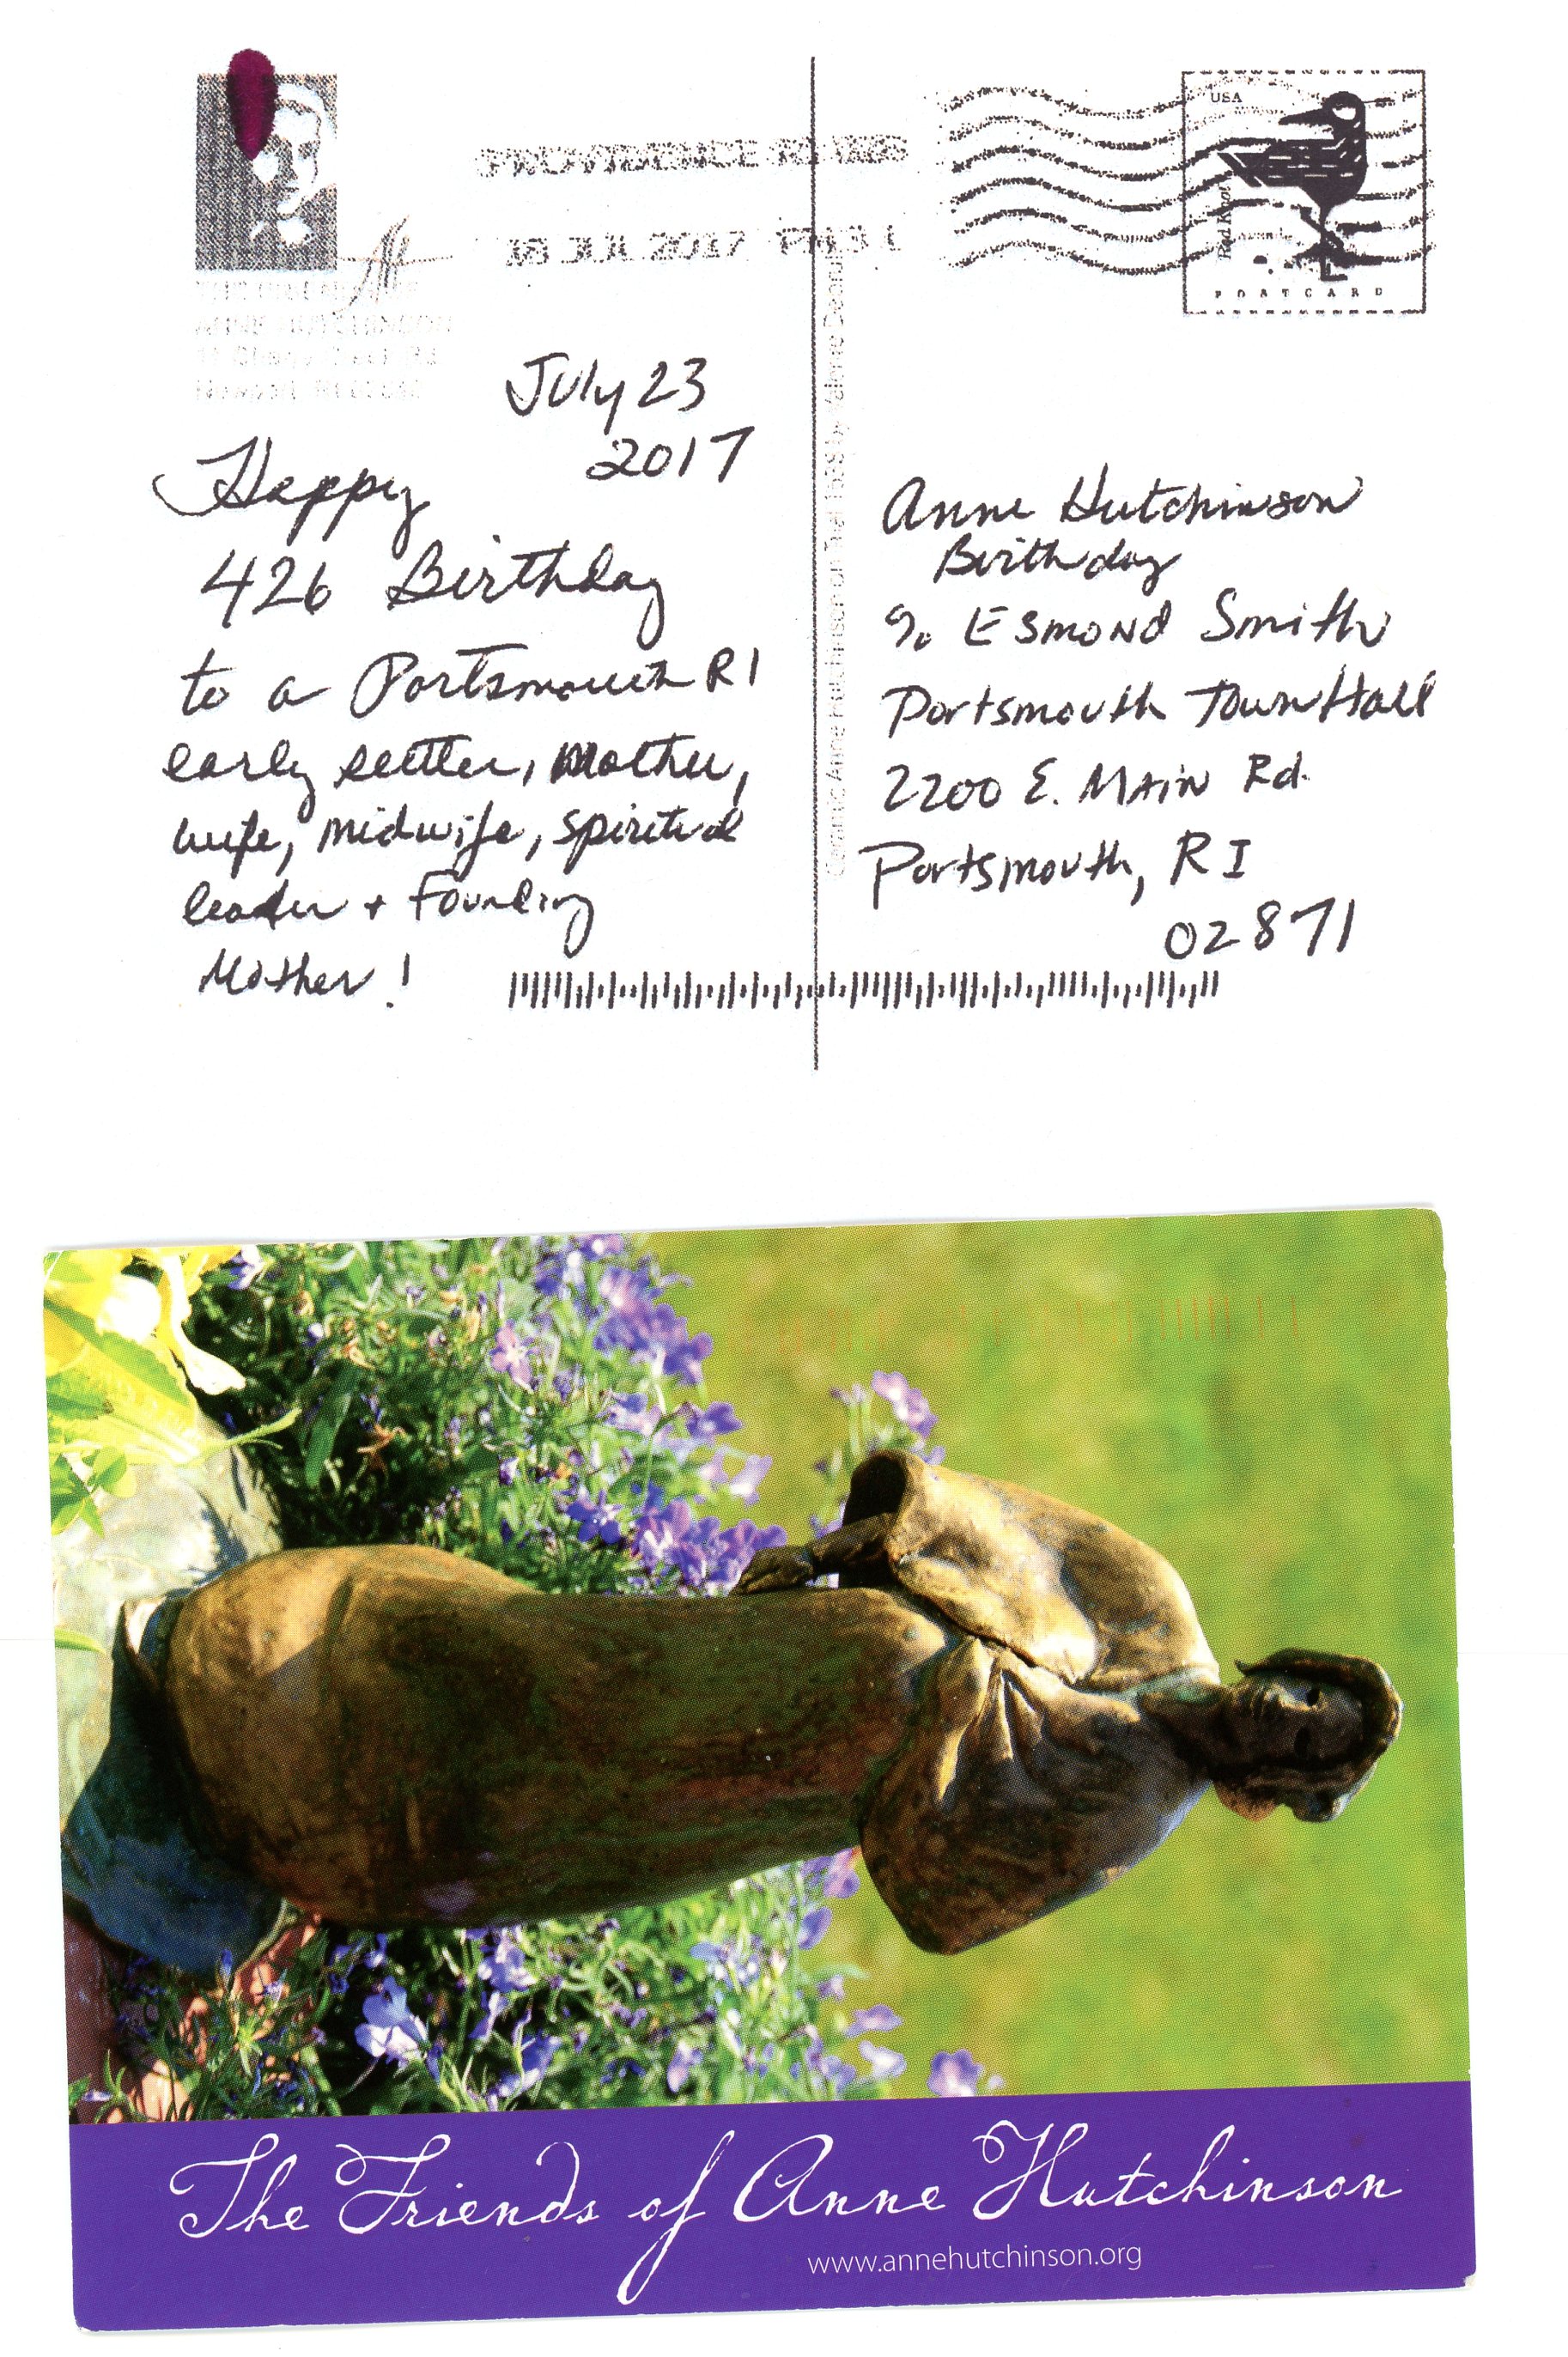 PROVIDENCE RI 028
18 JUL 2017 PM 3 L
USA
Red Knot
POSTCARD
THE FRIENDS OF
ANNE HUTCHINSON
July 23
2017
Happy
426 Birthday
to a Portsmouth RI
early settler, Mother,
wife, midwife, spiritual
leader + Founding
Mother!
Ceramic Anne Hutchinson on Trial 1638 by Valerie Debrule
Anne Hutchinson
Birthday
℅ Esmond Smith
Portsmouth Town Hall
2200 E. MAIN Rd.
Portsmouth, RI
02871
The Friends of Anne Hutchinson
www.annehutchinson.org